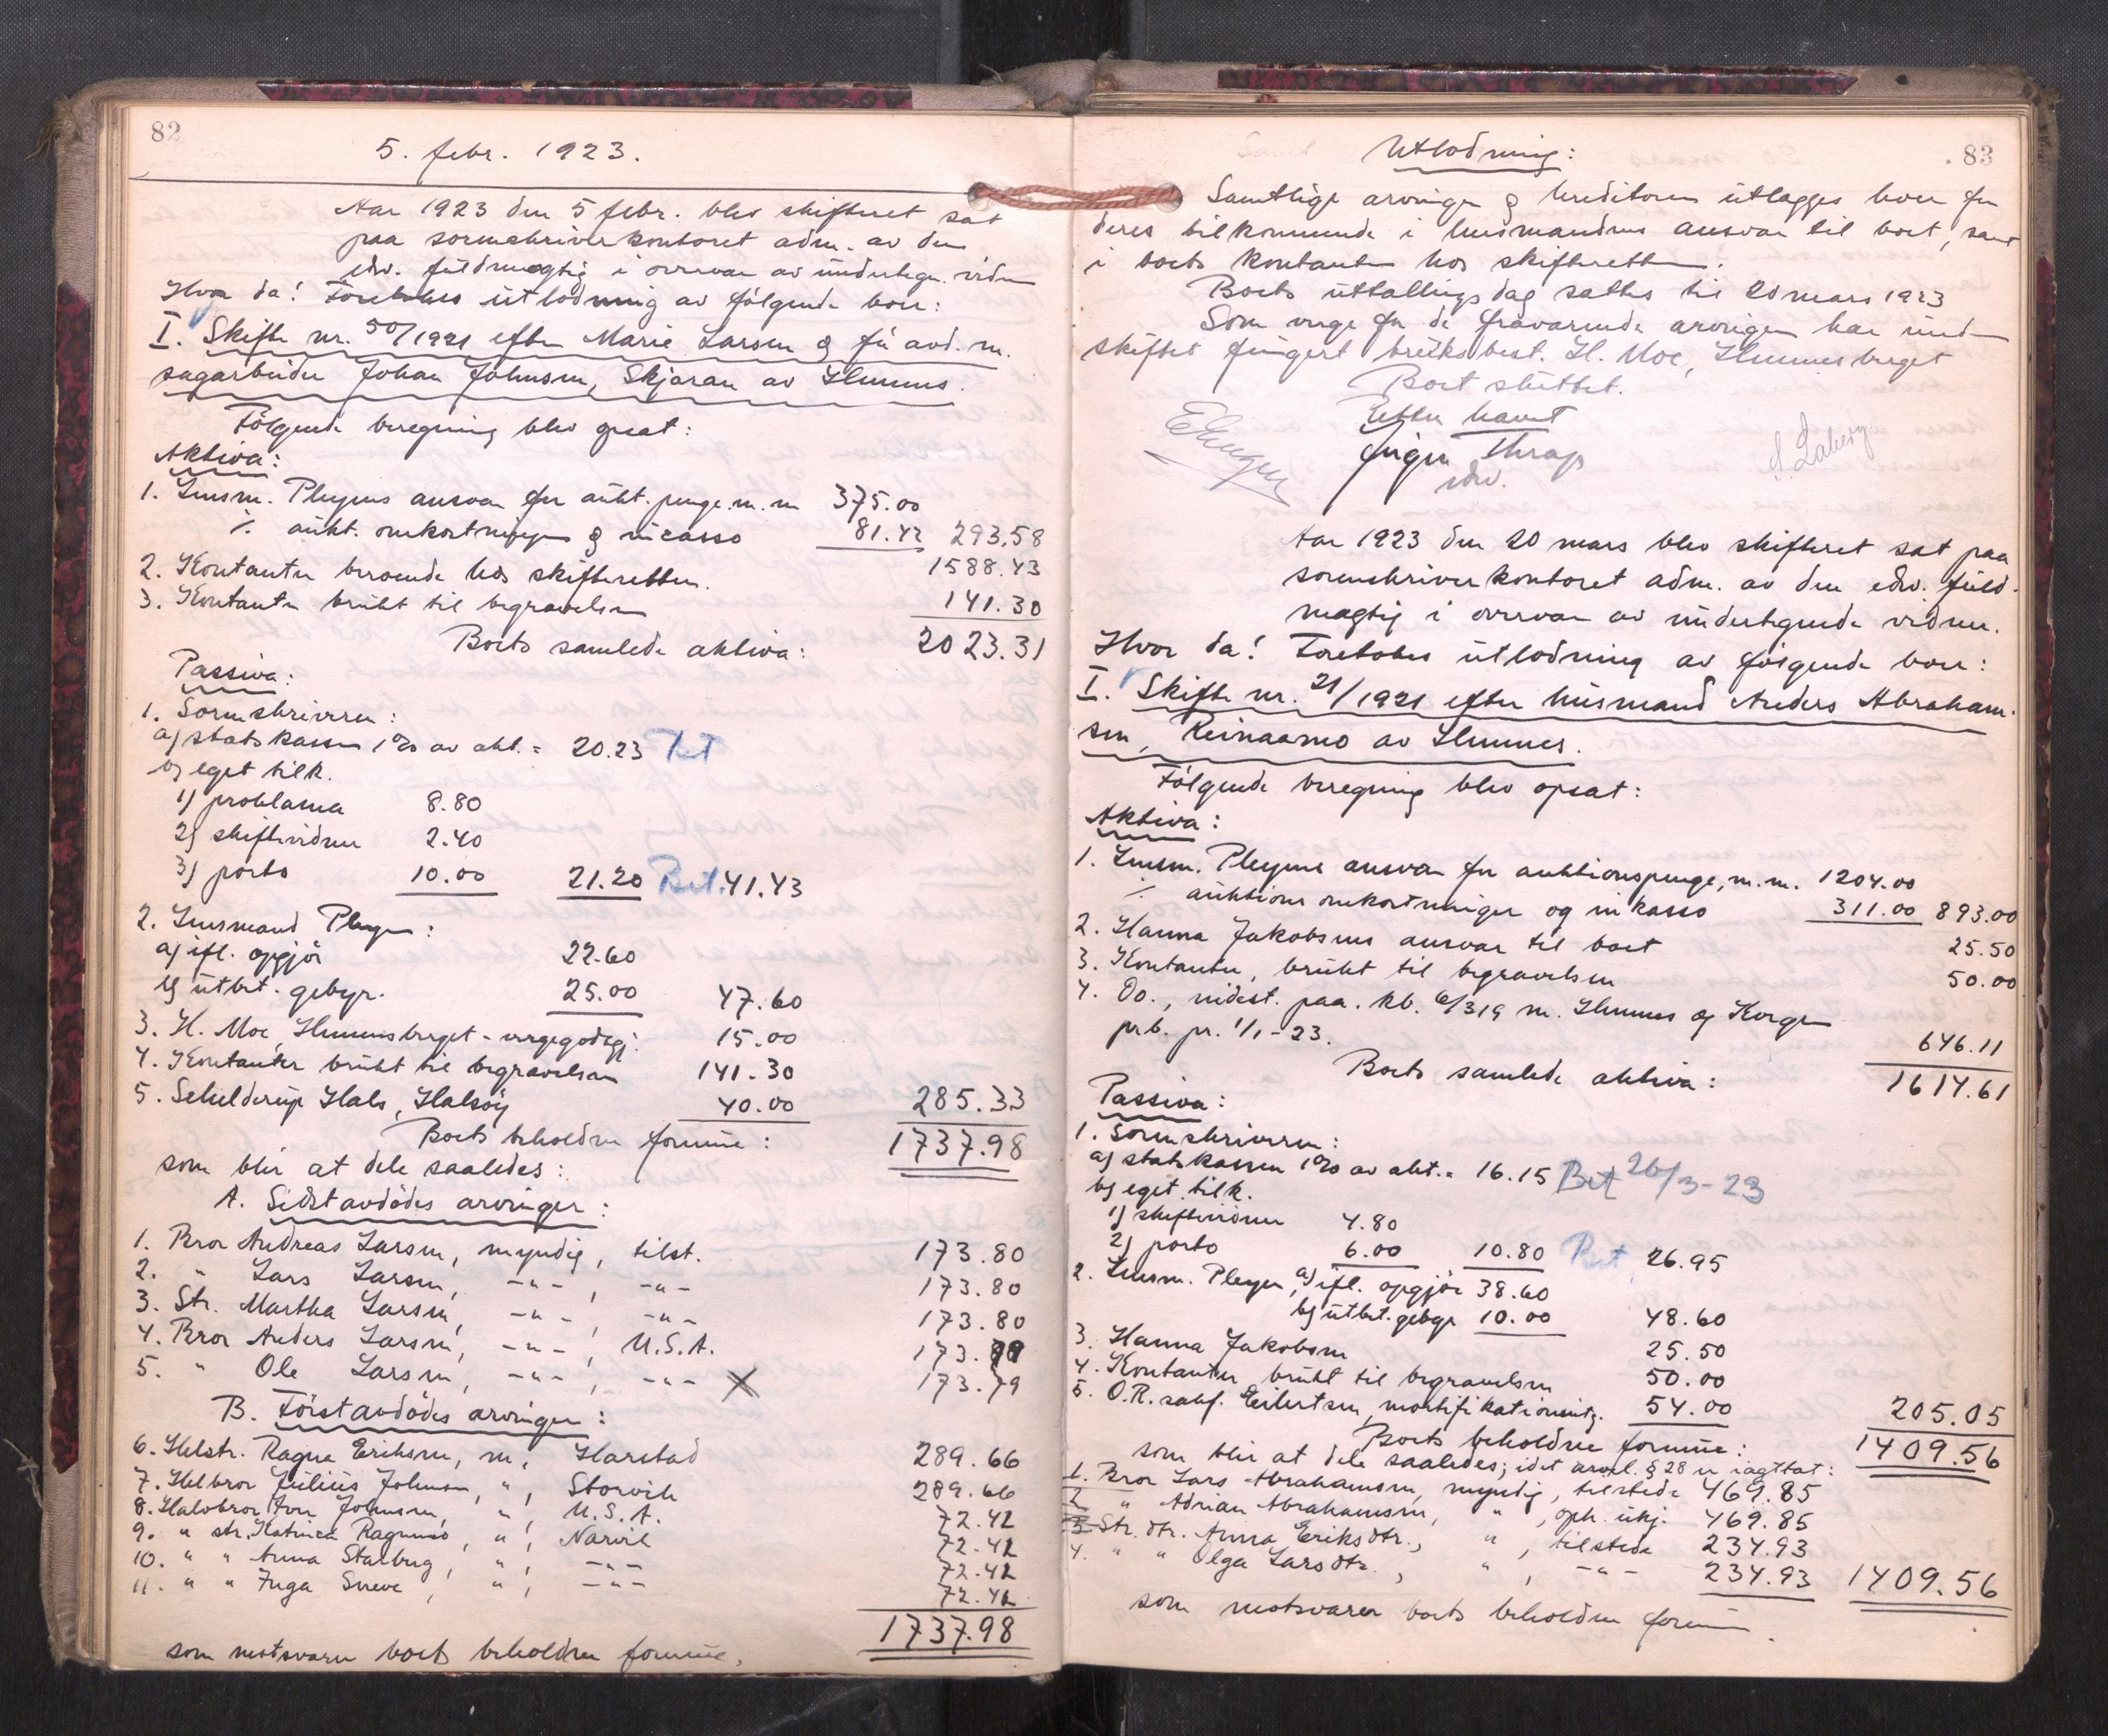 82
5. febr. 1923.
Aar 1923 den 5 febr. blev skifteret sat
paa sorenskriverkontoret adm. av den
edv. fuldmægtig i overvær av undertegn. vidner
Hvor da! Foretokes utlodning av følgende boer:
I. Skifte nr. 50/1921 efter Marie Larsen & få avd. m.
sagarbeider Johan Johnsen, Skjæran av Hemnes.
Følgende beregning blev opsat:
Aktiva:
1. Lensm. Pleyms ansvar for aukt. penge m. m 375.00
÷ aukt. omkostninger & incasso 81.42 293.58
2. Kontanter beroende hos skifteretten. 1588.43
3. Kontanter brukt til begravelsen 141.30
Boets samlede aktiva: 2023.31
Passiva:
1. Sorenskriveren:
a) statskassen 1% av akt. = 20.23 Bet
b) eget tilk.
1) proklama 8.80
2) skiftevidner 2.40
3) porto 10.00 21.20 Bet. 41.43
2. Lensmand Pleym:
a) ifl. opgjør 22.60
b) utbet. gebyr. 25.00 47.60
3. H. Moe, Hemnesberget - vergegodtgj. 15.00
4. Kontanter brukt til begravelsen 141.30
5. Schelderup Hals, Halsøy 40.00 285.33
Boets beholdne formue: 1737.98
som blir at dele saaledes:
A. Sidstavdødes arvinger:
1. Bror Andreas Larsen, myndig, tilst. 173.80
2. " Lars Larsen, -"-, -"- 173.80
3. Str. Martha Larsen, -"-, -"- 173.80
4. Bror Anders Larsen, -"-, U.S.A. 173.79
5. " Ole Larsen, -"-, -"- X 173.79
B. Førstavdødes arvinger:
6. Helstr. Ragna Eriksen, m, Harstad 289.66
7. Helbror Julius Johnsen, ", Storvik 289.66
8. Halvbror Johnsen, ", U.S.A. 72.42
9. " str. Katinca Ragnmo, ", Narvik 72.42
10. " " Anna Starberg, ", -"- 72.42
11. " " Inga Sneve, ", -"- 72.42
1737.98
som motsvarer boets beholdne formue.
83
Utlodning:
Samtlige arvinger & kreditorer utlægges hver for
deres tilkommende i lensmandens ansvar til boet, samt
i boets kontanter hos skifteretten.
Boets uttællingsdag sattes til 20 mars 1923
Som verge for de fraværende arvinger har under
skiftet fungert bruksbest. H. Moe, Hemnesberget
Boet sluttet.
Retten hævet
Jørgen Thrap
edv.
S. Laberg
Aar 1923 den 20 mars blev skifteret sat paa
sorenskriverkontoret adm. av den edv. fuld-
mægtig i overvær av undertegnede vidner.
Hvor da! Foretokes utlodning av følgende boer:
I. Skifte nr. 21/1921 efter husmand Anders Abraham-
sen, Reinaamo av Hemnes.
Følgende beregning blev opsat:
Aktiva:
1. Lensm. Pleyms ansvar for auktionspenge, m. m. 1204.00
÷ auktions omkostninger og inkasso 311.00 893.00
2. Hanna Jakobsens ansvar til boet 25.50
3. Kontanter, brukt til begravelsen 50.00
4. Do., indest. paa. kb. 6/319 m. Hemnes og Korgen
prb. pr. 1/1-23. 646.11
Boets samlede aktiva: 1614.61
Passiva:
1. Sorenskriveren:
a) statskassen 1% av akt. = 16.15 Bet 26/3-23
b) eget tilk.
1) skiftevidner 4.80
2) porto 6.00 10.80 Bet 26.95
2. Lensm. Pleym, a) ifl. opgjør 38.60
b) utbet. gebyr 10.00 48.60
3. Hanna Jakobsen 25.50
4. Kontanter brukt til begravelsen 50.00
5. O.R. sakf. Eilertsen, mortifikationsutg. 54.00 205.05
Boets beholdne formue: 1409.56
som blir at dele saaledes; idet arvel. § 28 er iagttat:
1. Bror Lars Abrahamsen, myndig, tilstede 469.85
2. " Adrian Abrahamsen, ", oph. ukj. 469.85
3. Str. dtr. Anna Eriksdtr., ", tilstede 234.93
4. " " Olga Larsdtr., ", -"- 234.93 1409.56
som motsvarer boets beholdne formue.